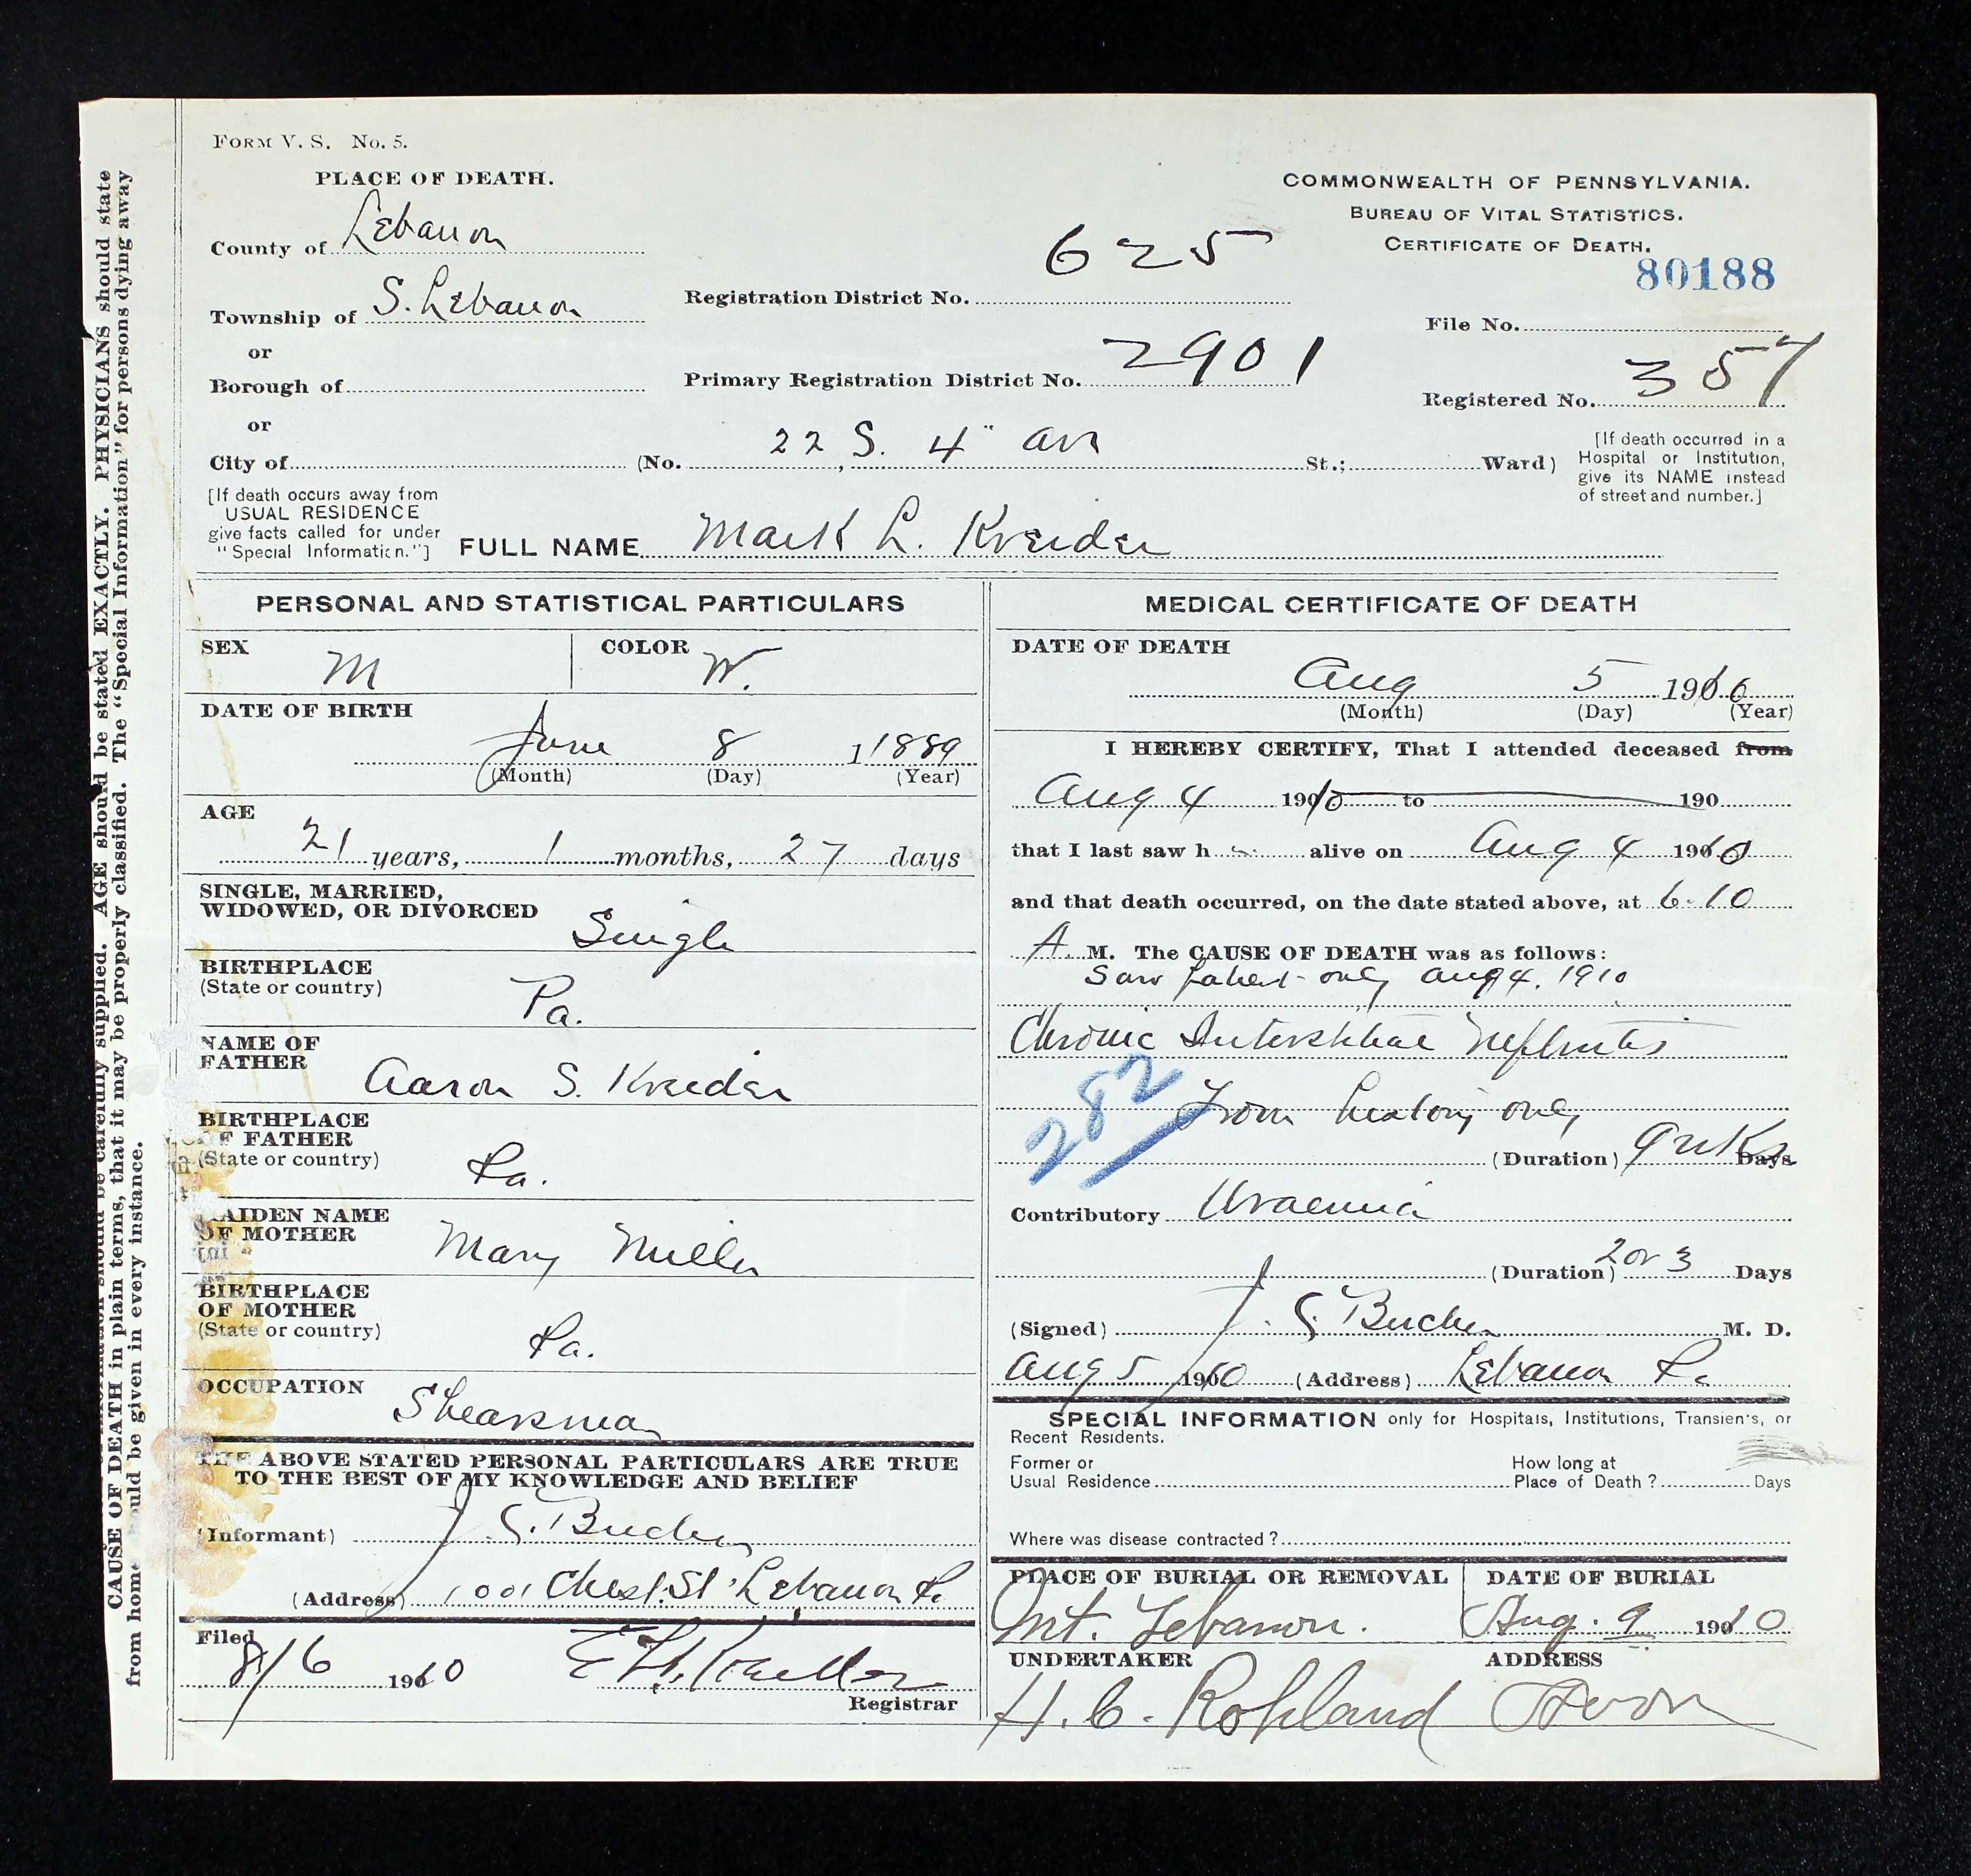 FORM V. S. No. 5.
PLACE OF DEATH.
County of Lebanon
Township of S. Lebanon
or
Borough of
or
City of
(No. 22 S. 4" av St.; Ward)
[If death occurs away from
USUAL RESIDENCE
give facts called for under
"Special Information."]
COMMONWEALTH OF PENNSYLVANIA.
BUREAU OF VITAL STATISTICS.
CERTIFICATE OF DEATH.
80188
Registration District No. 625
File No.
Primary Registration District No. 2901
Registered No. 357
[If death occurred in a
Hospital or Institution,
give its NAME instead
of street and number.]
FULL NAME Mark L. Kreider
PERSONAL AND STATISTICAL PARTICULARS
SEX M
COLOR W.
DATE OF BIRTH
June 8 1 1889
(Month) (Day) (Year)
AGE
21 years, 1 months, 27 days
SINGLE, MARRIED,
WIDOWED, OR DIVORCED Single
BIRTHPLACE
(State or country) Pa.
NAME OF
FATHER Aaron S. Kreider
BIRTHPLACE
OF FATHER
(State or country) Pa.
MAIDEN NAME
OF MOTHER Mary Miller
BIRTHPLACE
OF MOTHER
(State or country) Pa.
OCCUPATION Shearsman
THE ABOVE STATED PERSONAL PARTICULARS ARE TRUE
TO THE BEST OF MY KNOWLEDGE AND BELIEF
(Informant) J. S. Bucher
(Address) 1001 Chest. St. Lebanon Pa
Filed
8/6 1960
Registrar
MEDICAL CERTIFICATE OF DEATH
DATE OF DEATH
Aug 5 1910
(Month) (Day) (Year)
I HEREBY CERTIFY, That I attended deceased from
Aug 4 1910 to 190
that I last saw h alive on Aug 4 1910
and that death occurred, on the date stated above, at 6-10
A M. The CAUSE OF DEATH was as follows:
Saw patient only Aug 4. 1910
Chronic Interstitial Nephritis
From history only
282
(Duration) 9 wks Days
Contributory Uraemia
(Duration) 2 or 3 Days
(Signed) J. S. Bucher M. D.
Aug 5 1910 (Address) Lebanon Pa
SPECIAL INFORMATION only for Hospitals, Institutions, Transients, or
Recent Residents.
Former or
Usual Residence
How long at
Place of Death? Days
Where was disease contracted?
PLACE OF BURIAL OR REMOVAL
Mt. Lebanon.
DATE OF BURIAL
Aug. 9 1910
UNDERTAKER
H. C. Rohland
ADDRESS
Avon
CAUSE OF DEATH in plain terms, that it may be properly classified. The "Special Information" for persons dying away
from home should be given in every instance.
information should be carefully supplied. AGE should be stated EXACTLY. PHYSICIANS should state